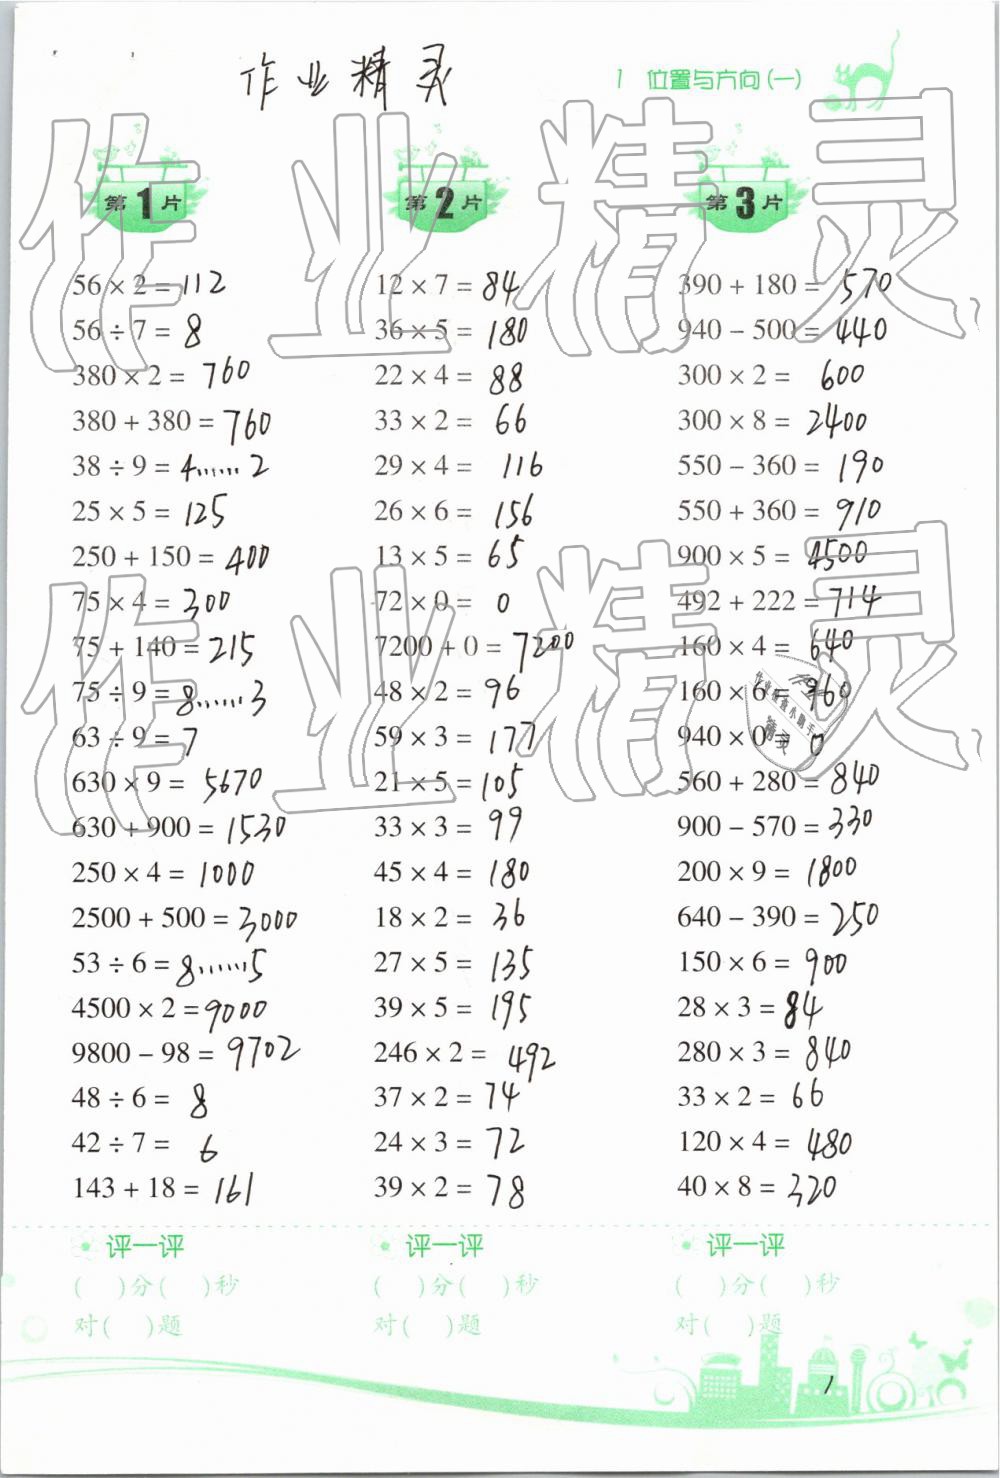 作业精灵
1 位置与方向(一)
第1片
56 × 2 = 112
56 ÷ 7 = 8
380 × 2 = 760
380 + 380 = 760
38 ÷ 9 = 4……2
25 × 5 = 125
250 + 150 = 400
75 × 4 = 300
75 + 140 = 215
75 ÷ 9 = 8……3
63 ÷ 9 = 7
630 × 9 = 5670
630 + 900 = 1530
250 × 4 = 1000
2500 + 500 = 3000
53 ÷ 6 = 8……5
4500 × 2 = 9000
9800 - 98 = 9702
48 ÷ 6 = 8
42 ÷ 7 = 6
143 + 18 = 161
评一评
( )分( )秒
对( )题
第2片
12 × 7 = 84
36 × 5 = 180
22 × 4 = 88
33 × 2 = 66
29 × 4 = 116
26 × 6 = 156
13 × 5 = 65
72 × 0 = 0
7200 + 0 = 7200
48 × 2 = 96
59 × 3 = 177
21 × 5 = 105
33 × 3 = 99
45 × 4 = 180
18 × 2 = 36
27 × 5 = 135
39 × 5 = 195
246 × 2 = 492
37 × 2 = 74
24 × 3 = 72
39 × 2 = 78
评一评
( )分( )秒
对( )题
第3片
390 + 180 = 570
940 - 500 = 440
300 × 2 = 600
300 × 8 = 2400
550 - 360 = 190
550 + 360 = 910
900 × 5 = 4500
492 + 222 = 714
160 × 4 = 640
160 × 6 = 960
940 × 0 = 0
560 + 280 = 840
900 - 570 = 330
200 × 9 = 1800
640 - 390 = 250
150 × 6 = 900
28 × 3 = 84
280 × 3 = 840
33 × 2 = 66
120 × 4 = 480
40 × 8 = 320
评一评
( )分( )秒
对( )题
1
作业精灵
作业精灵